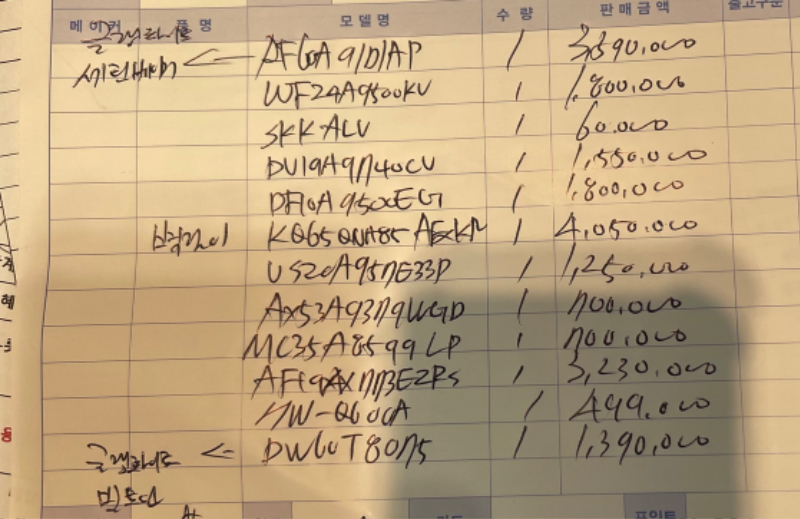 메이커 품 명 모델명 수 량 판매금액 출고구분
글램화이트
세틴베이지 ← 1 3,390,000
WF24A9500KV 1 1,800,000
SKK-ALV 1 60.000
DV19A9740CV 1 1,550,000
DF10A9500EG 1 1,800,000
벽걸이 KQ65QNA85AFXKR 1 4,050.000
VS20A957E33P 1 1,250,000
AX53A9379WGD 1 700,000
MC35A8599LP 1 700,000
1 3,230.000
HW-Q600A 1 499.000
글램화이트 ← DW60T8075 1 1,390,000
빌트인
카드 포인트